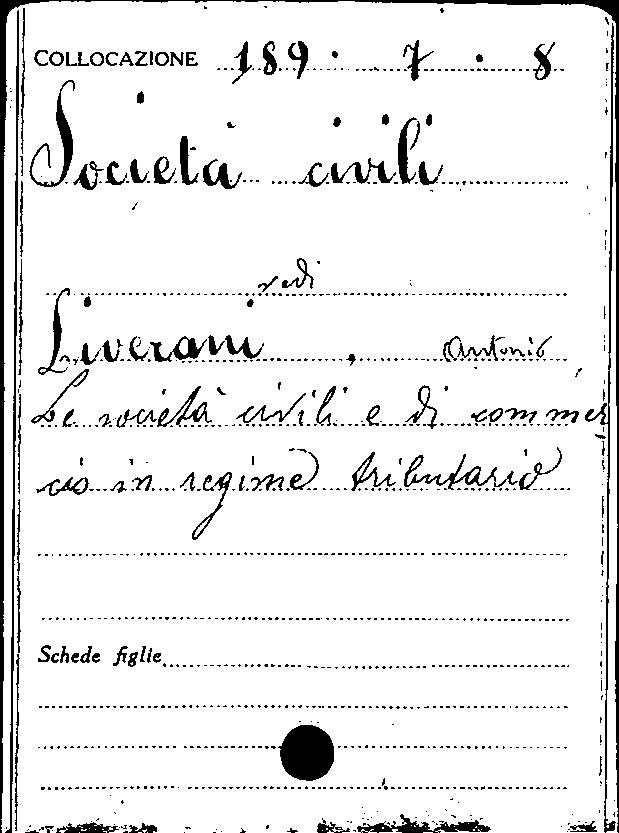 COLLOCAZIONE 189 · 7 · 8
Società civili
vedi
Liverani, Antonio
Le società civili e di commer
cio in regime tributario
Schede figlie